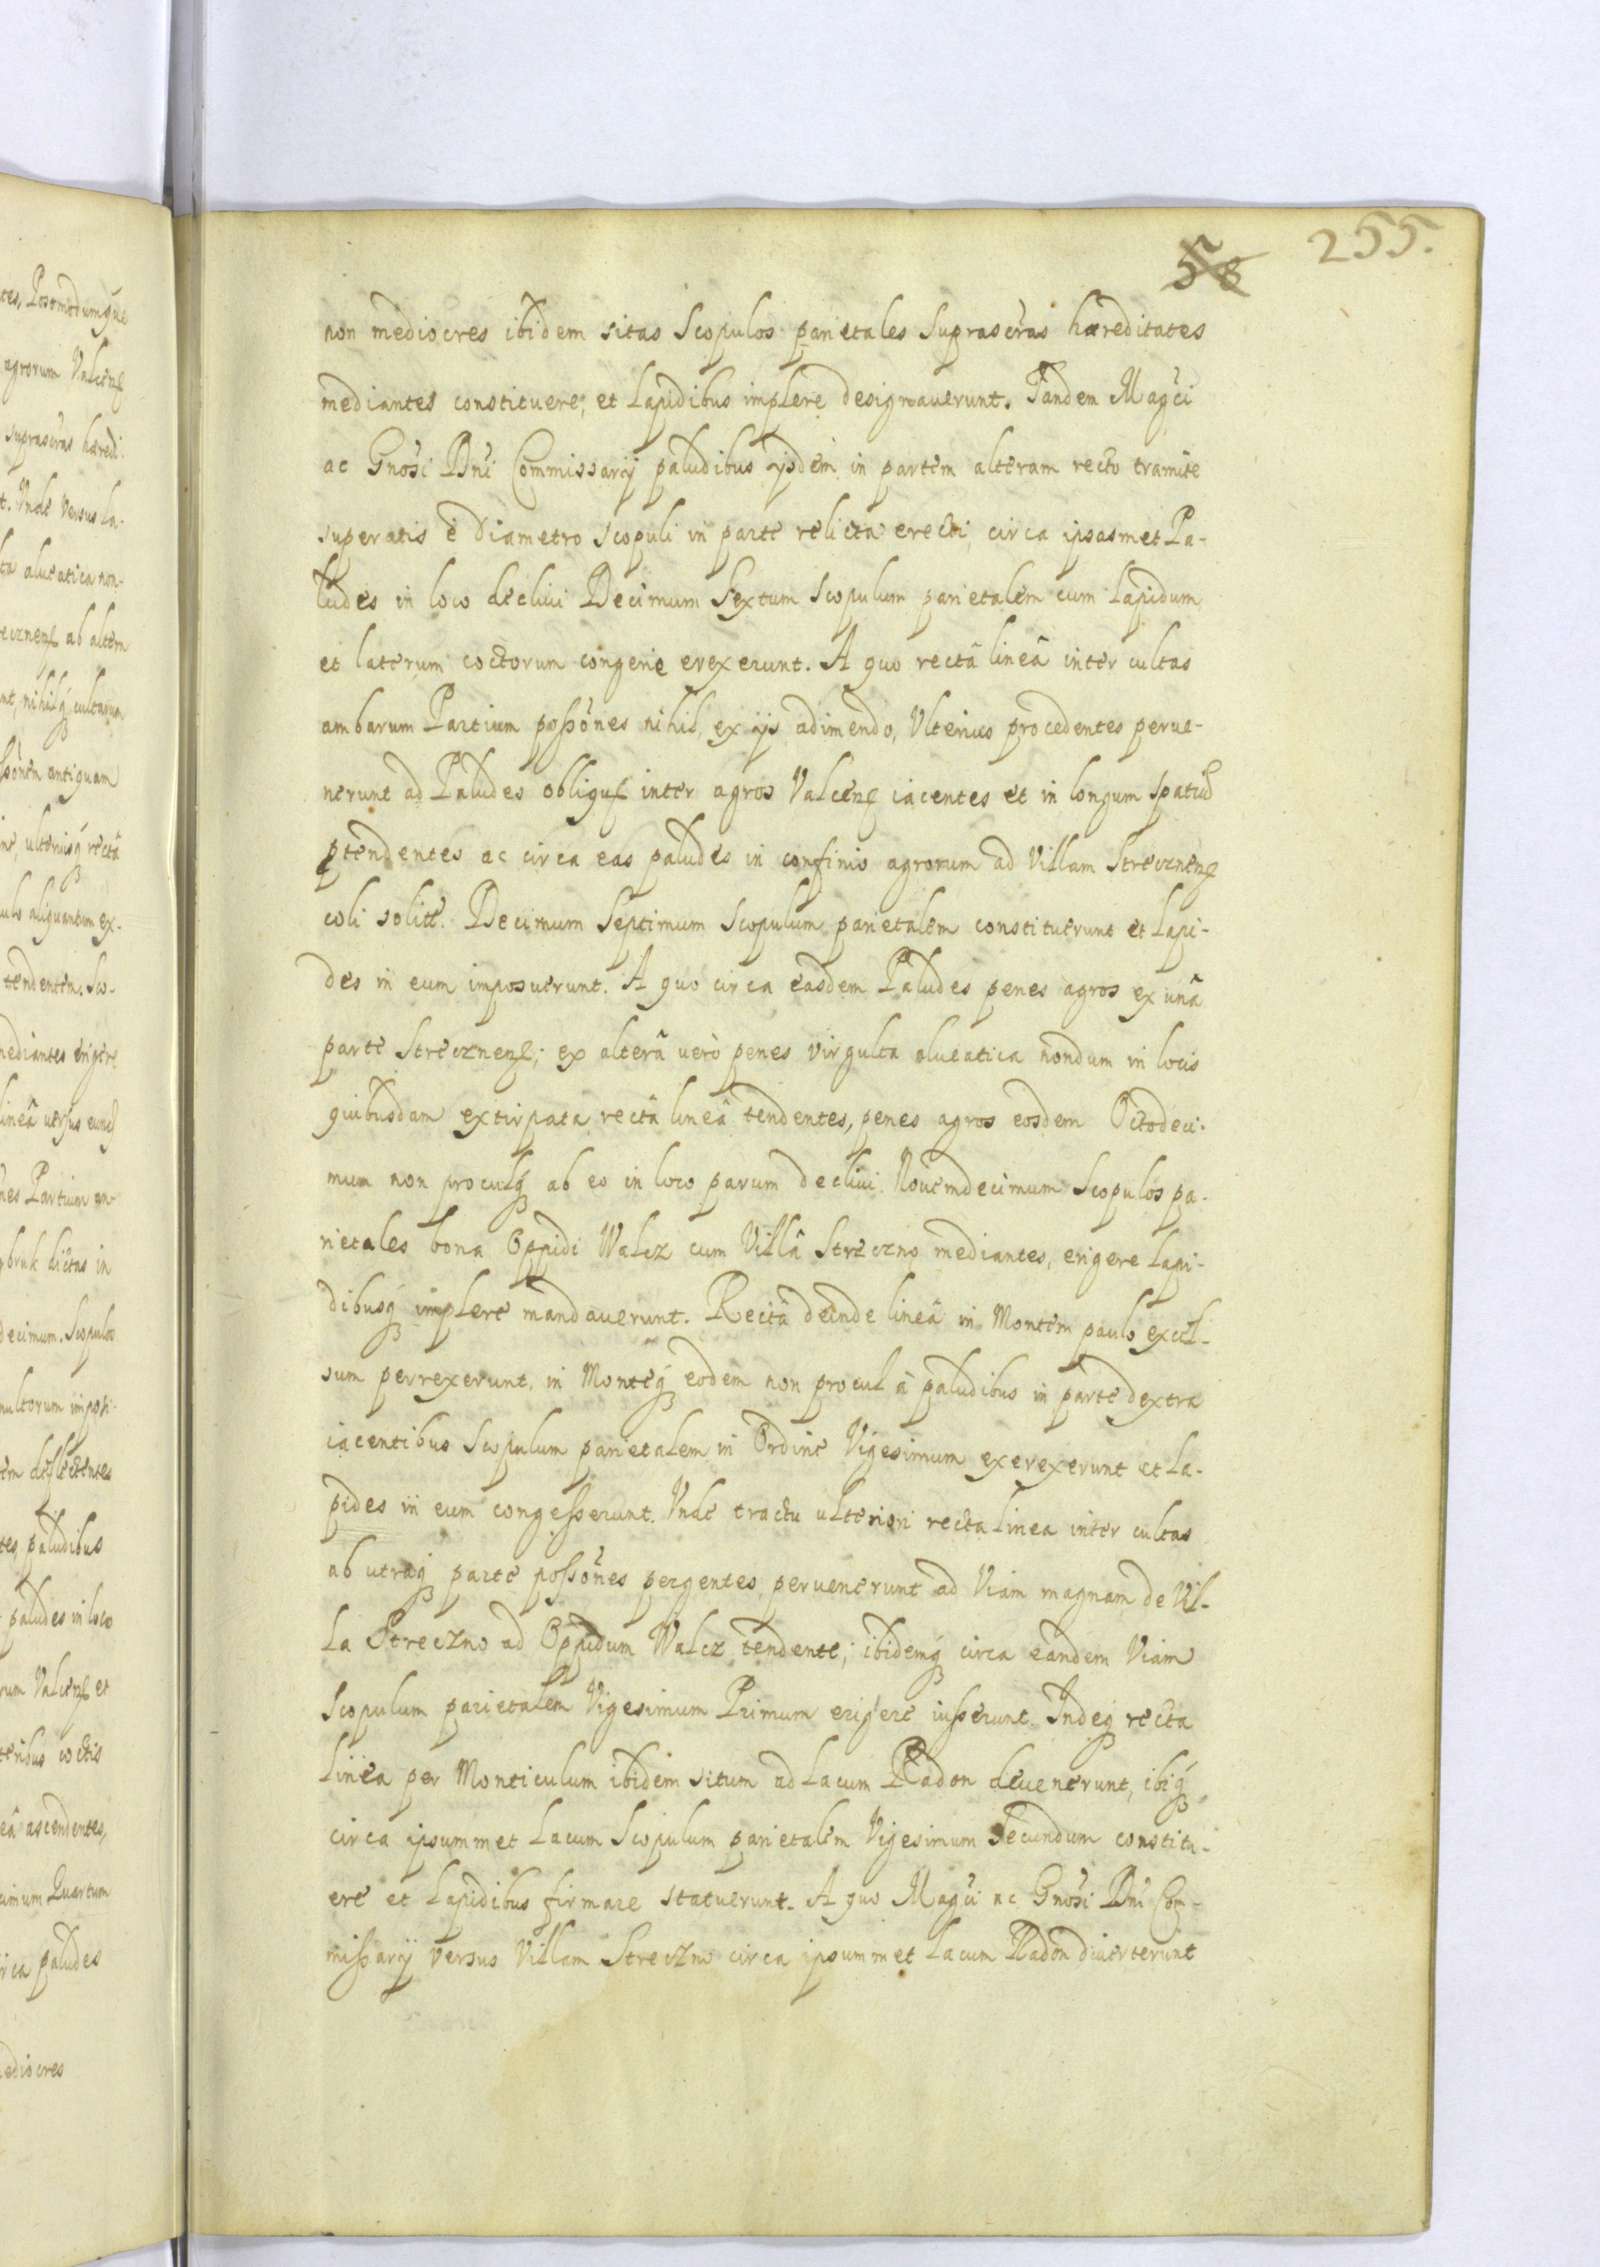 255.
58
non mediocres ibidem sitas Scopulos parietales suprascr̃as hæreditates
mediantes constituere, et Lapidibus implere designauerunt. Tandem Magc̃i
ac Gnosi Dnĩ Commissarij paludibus ijsdem in partem alteram recto tramite
superatis è Diametro Scopuli in parte relicta erecti, circa ipsasmet Pa-
ludes in loco declivi Decimum Sextum Scopulum parietalem cum Lapidum
et laterum coctorum congerie erexerunt. A quo rectâ lineâ inter cultas
ambarum Partium possões nihil ex ijs adimendo, Vlterius procedentes perue-
nerunt ad Paludes obliquę inter agros Valcenę iacentes et in longum spatiũ
ptendentes ac circa eas paludes in confinio agrorum ad Villam Strecznenę
coli solitę. Decimum Septimum Scopulum parietalem constituerunt et Lapi-
des in eum imposuerunt. A quo circa easdem Paludes penes agros ex unâ
parte Strecznenę; ex alterâ verò penes virgulta alueatica nondum in locis
quibusdam extirpata rectâ lineâ tendentes, penes agros eosdem Octodeci-
mum non proculq́ ab eo in loco parum declivi Nouemdecimum Scopulos pa-
rietales bona Oppidi Walcz cum Villâ Streczno mediantes, erigere Lapi-
dibusq́ implere mandauerunt. Rectâ deinde lineâ in Montem paulo excel-
sum perrexerunt, in Monteq́ eodem non procul à paludibus in parte dextra
iacentibus Scopulum parietalem in Ordine Vigesimum exerexerunt et La-
pides in eum congesserunt. Vnde tractu ulteriori recta linea inter cultas
ab utraq́ parte possões pergentes peruenerunt ad Viam magnam de Vil-
la Streczno ad Oppidum Walcz tendente; ibidemq́ circa eandem Viam
Scopulum parietalem Vigesimum Primum erigere iusserunt. Indeq́ recta
Linea per Monticulum ibidem situm ad Lacum Radon deuenerunt, ibiq́
circa ipsummet Lacum Scopulum parietalem Vigesimum Secundum constitu-
ere et Lapidibus firmare statuerunt. A quo Magc̃i ac Gnosi Dnĩ Com-
missarij versus Villam Streczno circa ipsummet Lacum Radon diuerterunt